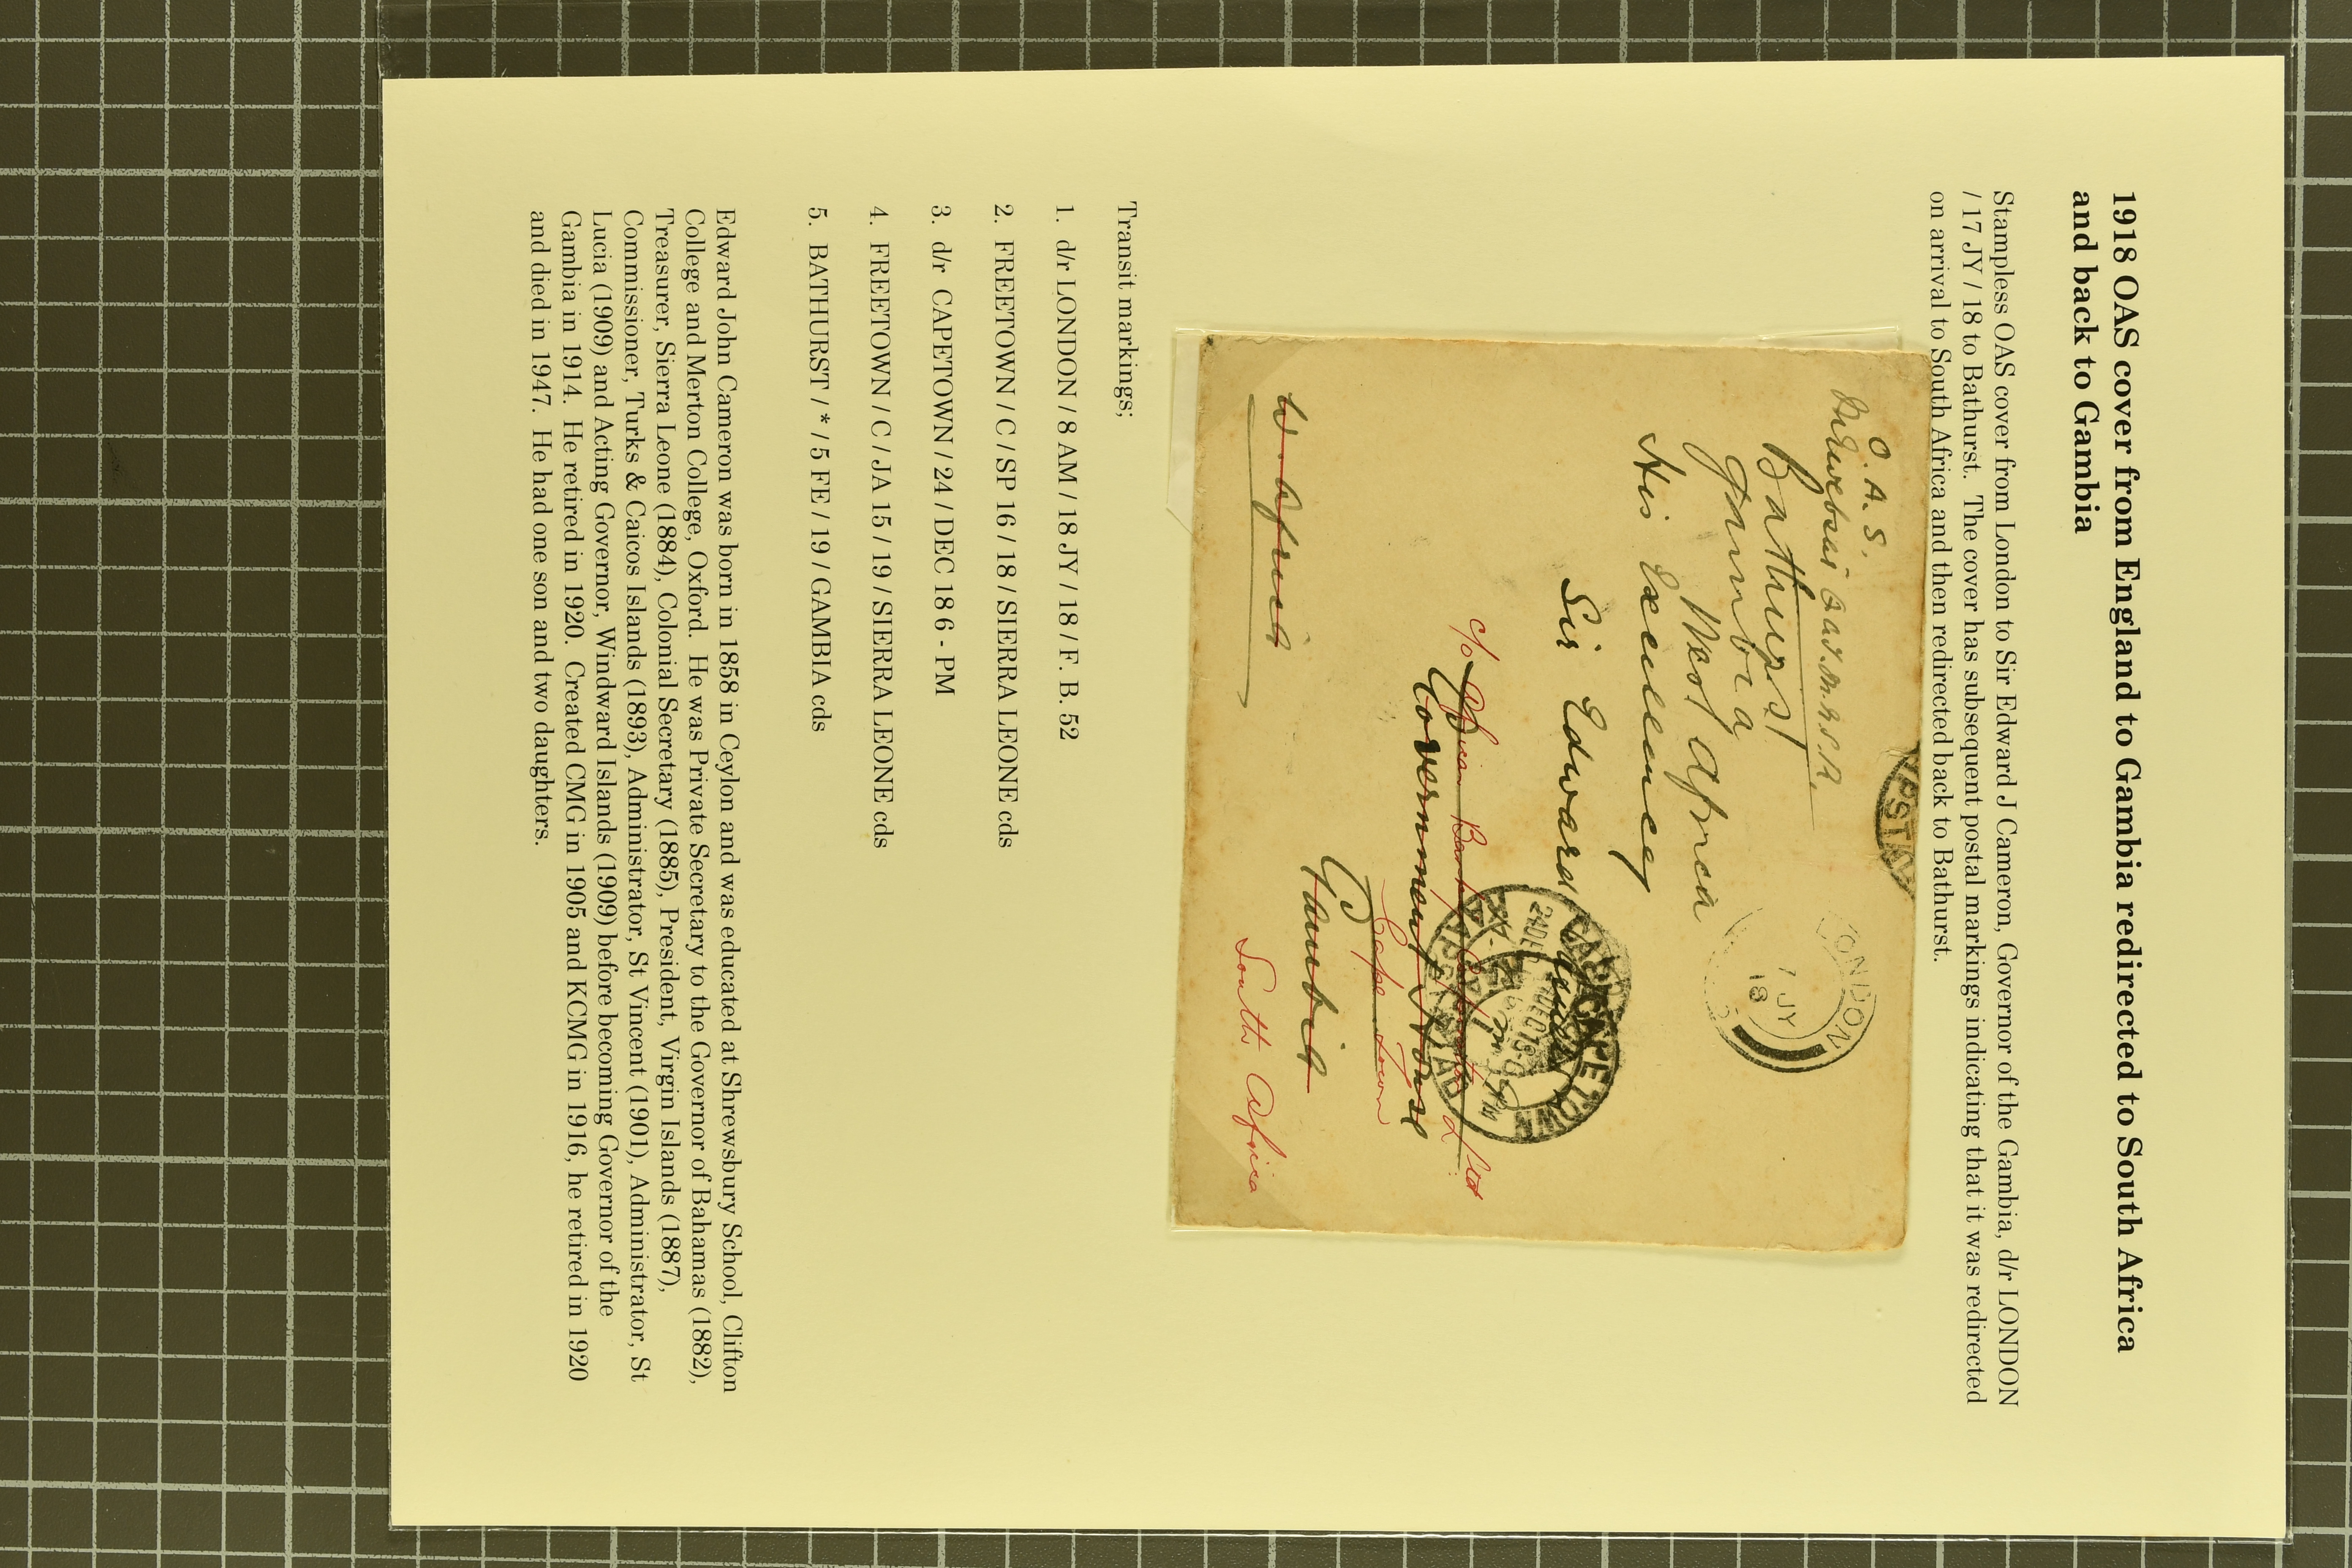 1918 OAS cover from England to Gambia redirected to South Africa
and back to Gambia
Stampless OAS cover from London to Sir Edward J Cameron, Governor of the Gambia, d/r LONDON
/ 17 JY / 18 to Bathurst. The cover has subsequent postal markings indicating that it was redirected
on arrival to South Africa and then redirected back to Bathurst.
O. A. S.
Bathurst
Gambia
West Africa
His Excellency
Sir Edward
c/o African Banking Corporation Ltd
Government House
Cape Town
Gambia
W. Africa
South Africa
LONDON
7 JY
18
CAPE TOWN
Transit markings;
1. d/r LONDON / 8 AM / 18 JY / 18 / F. B. 52
2. FREETOWN / C / SP 16 / 18 / SIERRA LEONE cds
3. d/r CAPETOWN / 24 / DEC 18 6 - PM
4. FREETOWN / C / JA 15 / 19 / SIERRA LEONE cds
5. BATHURST / * / 5 FE / 19 / GAMBIA cds
Edward John Cameron was born in 1858 in Ceylon and was educated at Shrewsbury School, Clifton
College and Merton College, Oxford. He was Private Secretary to the Governor of Bahamas (1882),
Treasurer, Sierra Leone (1884), Colonial Secretary (1885), President, Virgin Islands (1887),
Commissioner, Turks & Caicos Islands (1893), Administrator, St Vincent (1901), Administrator, St
Lucia (1909) and Acting Governor, Windward Islands (1909) before becoming Governor of the
Gambia in 1914. He retired in 1920. Created CMG in 1905 and KCMG in 1916, he retired in 1920
and died in 1947. He had one son and two daughters.